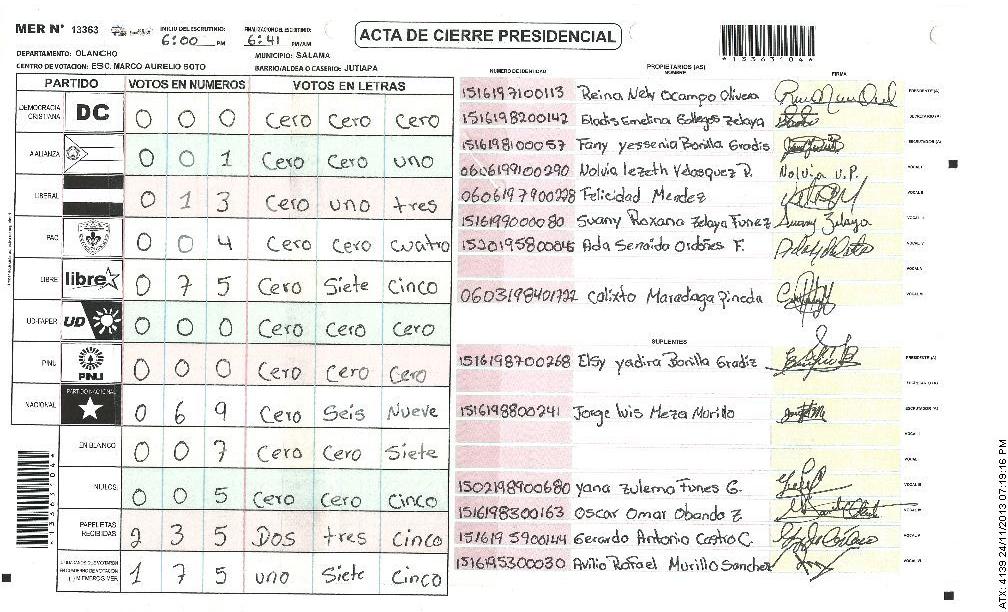 MER Nº 13363
INICIO DEL ESCRUTINIO: 6:00 PM
FINALIZACION DEL ESCRUTINIO: 6:41 PM/AM
ACTA DE CIERRE PRESIDENCIAL
*1336304*
DEPARTAMENTO: OLANCHO
MUNICIPIO: SALAMA
CENTRO DE VOTACION: ESC. MARCO AURELIO SOTO
BARRIO/ALDEA O CASERIO: JUTIAPA
PARTIDO VOTOS EN NUMEROS VOTOS EN LETRAS
DEMOCRACIA CRISTIANA DC 0 0 0 Cero Cero Cero
ALIANZA 0 0 1 Cero Cero uno
LIBERAL 0 1 3 Cero uno tres
PAC 0 0 4 Cero Cero cuatro
LIBRE libre 0 7 5 Cero Siete Cinco
UD-FAPER UD 0 0 0 Cero Cero Cero
PINU PINU 0 0 0 Cero Cero Cero
NACIONAL PARTIDO NACIONAL 0 6 9 Cero Seis Nueve
EN BLANCO 0 0 7 Cero Cero Siete
NULOS 0 0 5 Cero Cero Cinco
PAPELETAS RECIBIDAS 2 3 5 Dos tres Cinco
1 7 5 uno Siete Cinco
*1336304*
NUMERO DE IDENTIDAD PROPIETARIOS (AS) NOMBRE FIRMA
1516197100113 Reina Nely Ocampo Olivera PRESIDENTE (A)
1516198200142 Eladis Emelina Gallegos Zelaya SECRETARIO (A)
1516198100057 Fany yessenia Bonilla Gradis ESCRUTADOR (A)
0606199100290 Nolvia lezeth Velasquez P. Nolvia V.P. VOCAL I
0606197900228 Felicidad Mendez VOCAL II
1516199000080 Suany Roxana Zelaya Funez Suany Zelaya VOCAL III
Ada Ordoñes F. VOCAL IV
VOCAL V
0603198401722 Calixto Maradaga Pineda VOCAL VI
SUPLENTES
1516198700268 Elsy yadira Bonilla Gradiz PRESIDENTE (A)
SECRETARIO (A)
1516198800241 Jorge luis Meza Murillo ESCRUTADOR (A)
VOCAL I
VOCAL II
1502198900680 yana zulema Funes G. VOCAL III
1516198300163 Oscar Omar Obando Z. VOCAL IV
1516195900144 Gerardo Antonio Castro C. VOCAL V
1516195300030 Avilio Rafael Murillo Sanchez VOCAL VI
ATX: 4139 24/11/2013 07:19:16 PM